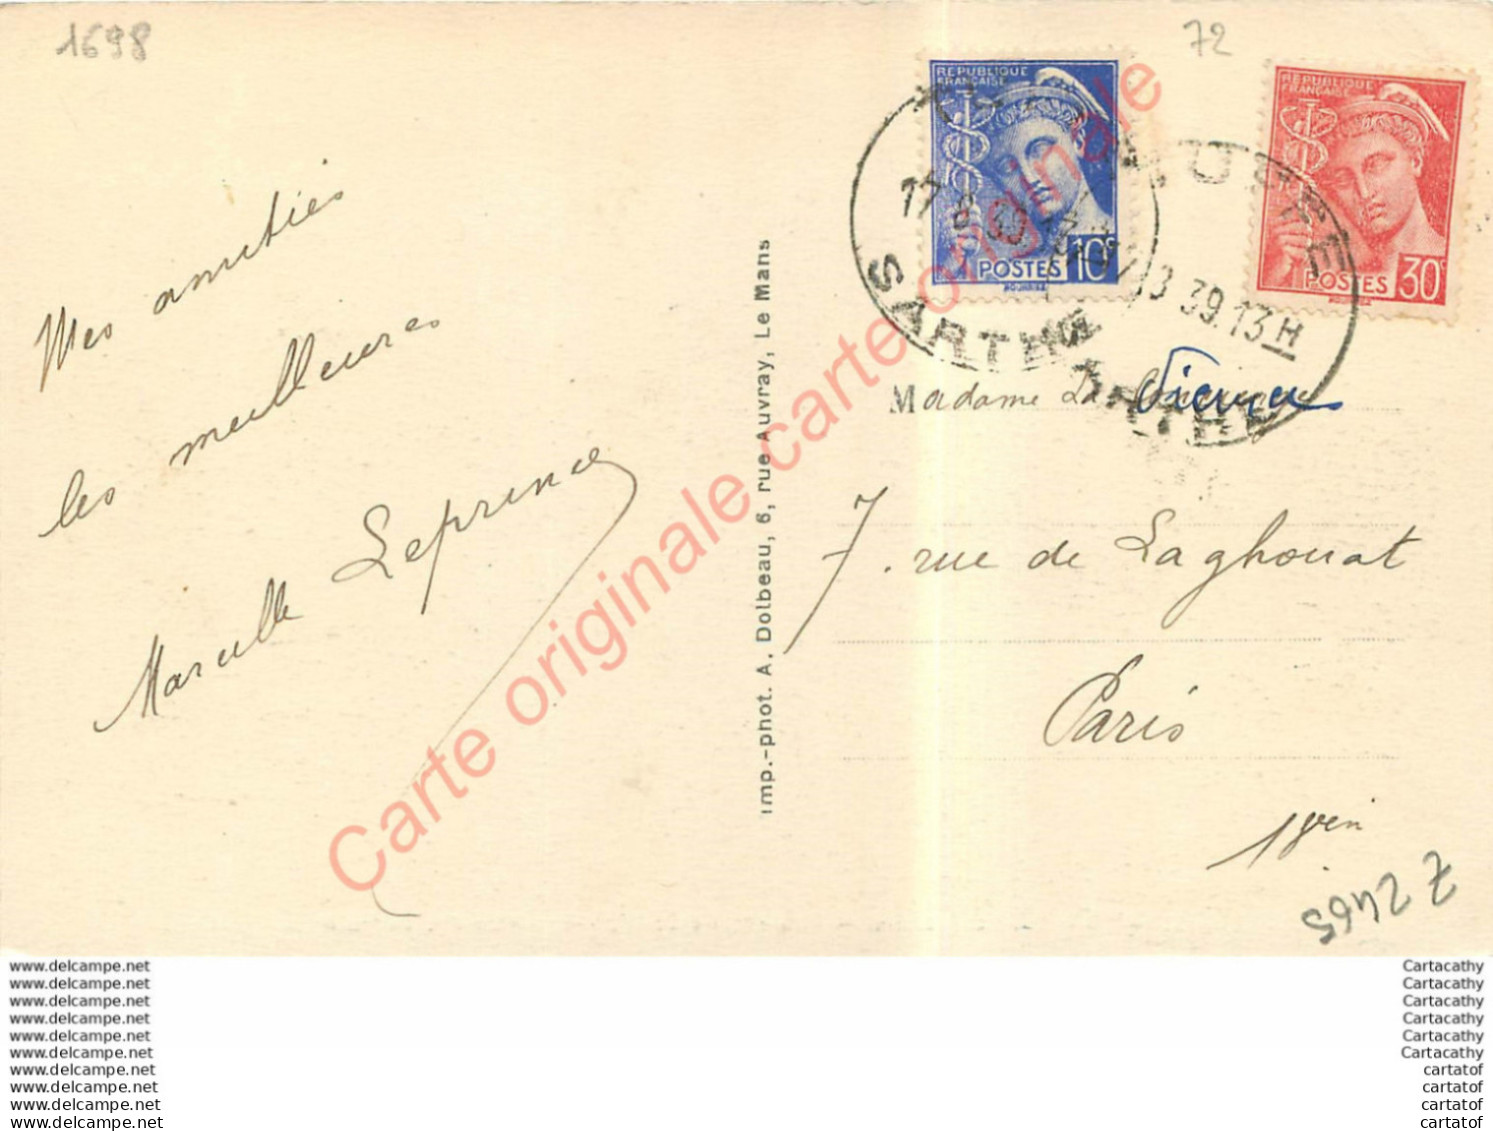 1698
72
RÉPUBLIQUE
FRANÇAISE
POSTES 10c
RÉPUBLIQUE
FRANÇAISE
POSTES 30c
17
SARTHE
39.13H
Mes amitiés
les meilleures
Marcelle Leprince
Imp.-phot. A. Dolbeau, 6, rue Auvray, Le Mans
Madame La
7. rue de Laghouat
Paris
Z 2465
Carte originale carte originale
www.delcampe.net
www.delcampe.net
www.delcampe.net
www.delcampe.net
www.delcampe.net
www.delcampe.net
www.delcampe.net
www.delcampe.net
www.delcampe.net
www.delcampe.net
Cartacathy
Cartacathy
Cartacathy
Cartacathy
Cartacathy
Cartacathy
cartatof
cartatof
cartatof
cartatof